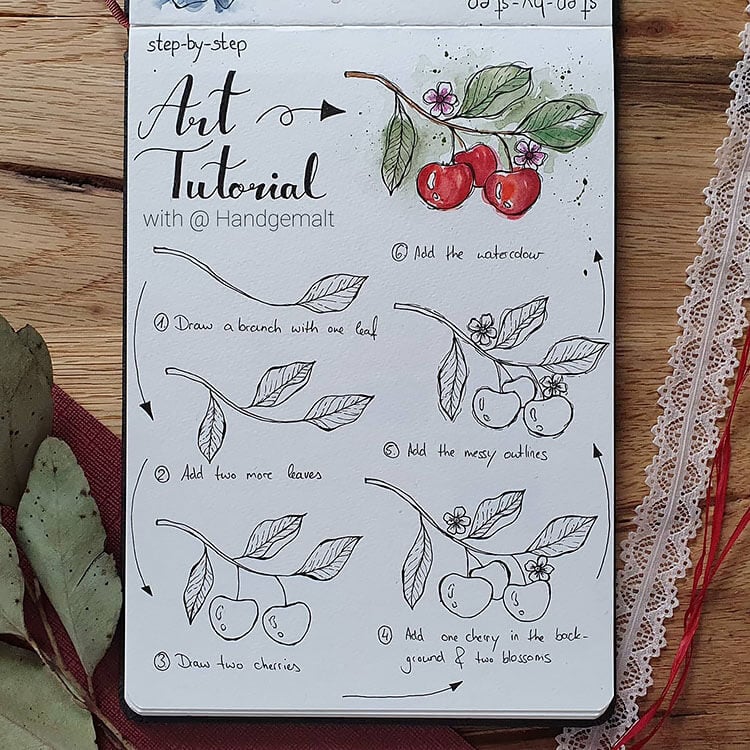 step-by-step
step-by-step
Art
Tutorial
with @ Handgemalt
① Draw a branch with one leaf
② Add two more leaves
③ Draw two cherries
④ Add one cherry in the back-
ground & two blossoms
⑤ Add the messy outlines
⑥ Add the watercolour